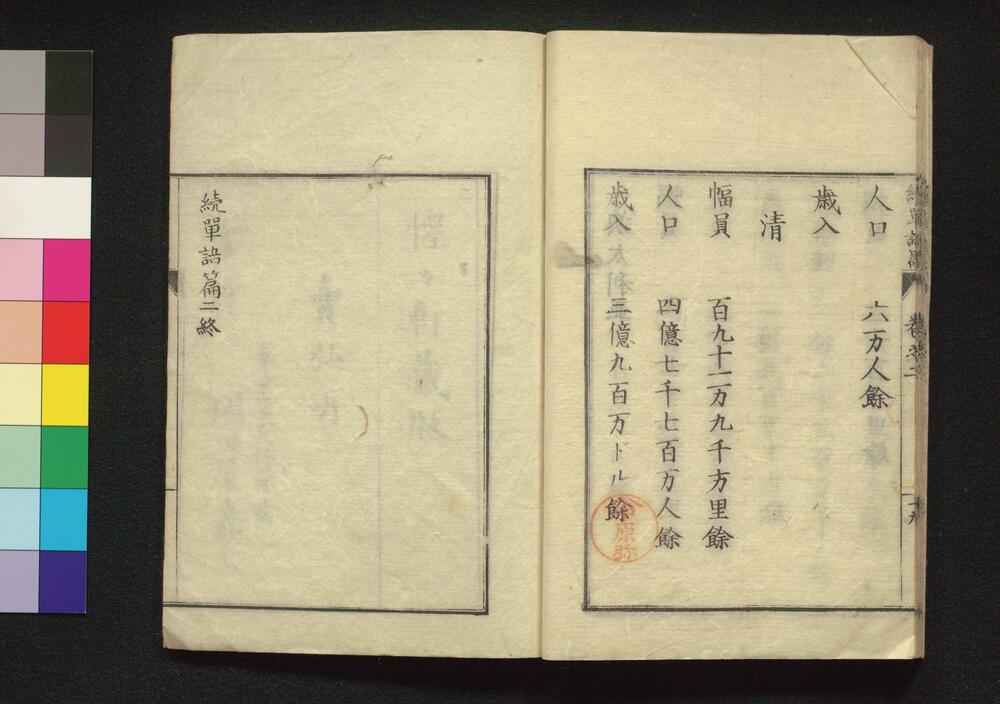 人口　六一万人餘
歳入
清
幅員　百九十一万九千方里餘
人口　四億七千七百万人餘
歳入　三億九百万ドル餘
原弥
續單語篇
巻之二
十九
続單語篇二終